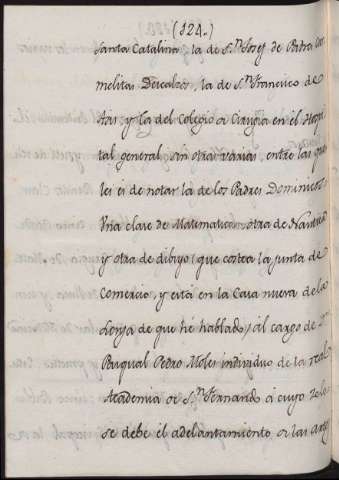 (124.)
Santa Catalina la de S.n Josef de Padres Car
melitas Descalzos, la de S.n Francisco de
Asis; y la del Colegio de Cirugia en el Hospi
tal general, sin otras varias, entre las qua
les es de notar la de los Padres Dominicos
Una clase de Matematicas otra de Nautica
y otra de dibujo (que costea la junta de
Comercio, y está en la Casa nueva de la
Lonja de que he hablado) al cargo de
Pasqual Pedro Moles individuo de la real
Academia de S.n Fernando á cuyo zelo
se debe el adelantamiento de las artes